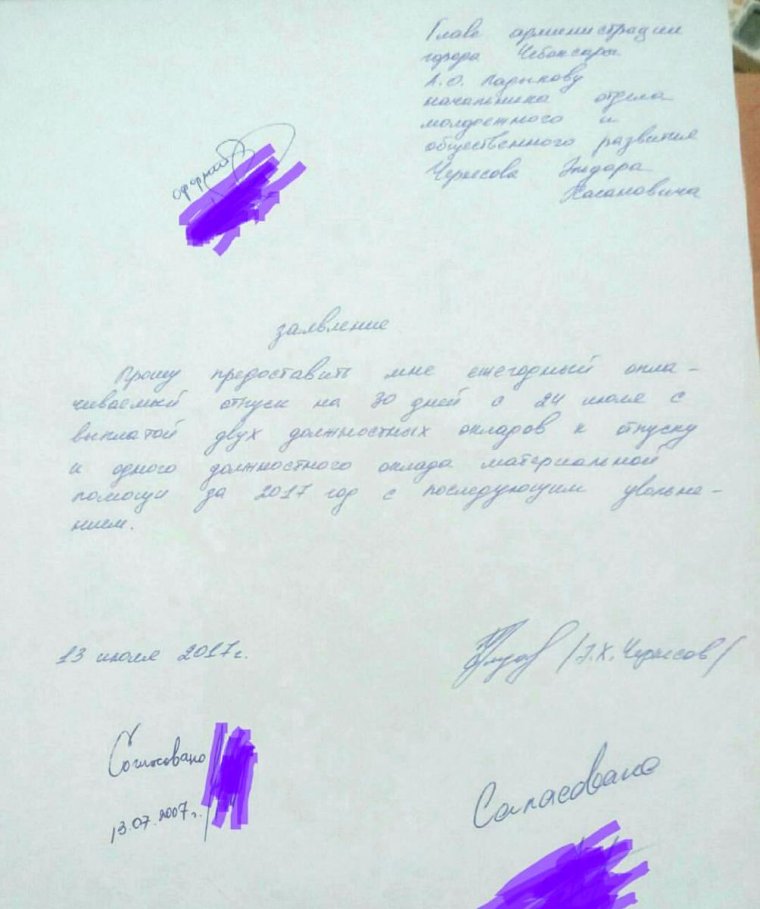 Главе администрации
города Чебоксары
А.О. Ладыкову
начальника отдела
молодежного и
общественного развития
Черкесова Эльдара
Хасановича
заявление
Прошу предоставить мне ежегодный опла-
чиваемый отпуск на 30 дней с 24 июля с
выплатой двух должностных окладов к отпуску
и одного должностного оклада материальной
помощи за 2017 год с последующим увольне-
нием.
13 июля 2017г.
/Э.Х. Черкесов/
Согласовано
13.07.2007г.
Согласовано